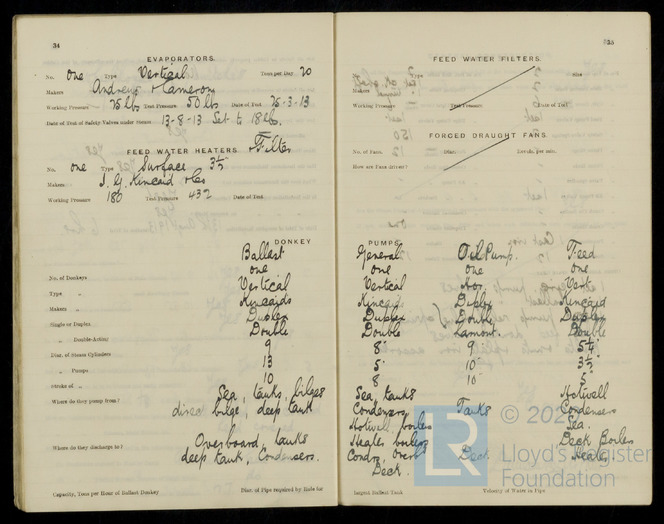 34
EVAPORATORS.
No. One Type Vertical Tons per Day 20
Makers Andrews & Cameron
Working Pressure 25 lbs Test Pressure 50 lbs Date of Test 26-3-13
Date of Test of Safety Valves under Steam 13-8-13 Set to 18 lbs.
FEED WATER HEATERS & Filter
No. one Type Surface 3½
Makers J. G. Kincaid & Co
Working Pressure 180 Test Pressure 432 Date of Test
DONKEY
Ballast
No. of Donkeys one
Type „ Vertical
Makers „ Kincaids
Single or Duplex Duplex
„ Double-Acting Double
Diam. of Steam Cylinders 9
„ Pumps 13
Stroke of „ 10
Where do they pump from? Sea, tanks, bilges
direct bilge, deep tank
Where do they discharge to? Overboard, tanks
deep tank, Condensers.
Capacity, Tons per Hour of Ballast Donkey Diam. of Pipe required by Rule for
35
FEED WATER FILTERS.
No. Type Size
Makers
Working Pressure Test Pressure Date of Test
FORCED DRAUGHT FANS.
No. of Fans. Diar. Revols. per min.
How are Fans driven?
PUMPS.
General Oil Pump. Feed
one one one
Vertical Hor. Vert.
Kincaids Duplex Kincaid
Duplex Double Duplex
Double Lamont. Double
8 9 5¼
5 10 3½
8 10 5
Sea, tanks Hotwell
Condensers, Tanks Condensers
Hotwell, boilers Sea.
Heater boilers Deck Boilers
Condrs, Overb Deck Heater
Deck.
largest Ballast Tank Velocity of Water in Pipe
LR
Lloyd's Register
Foundation